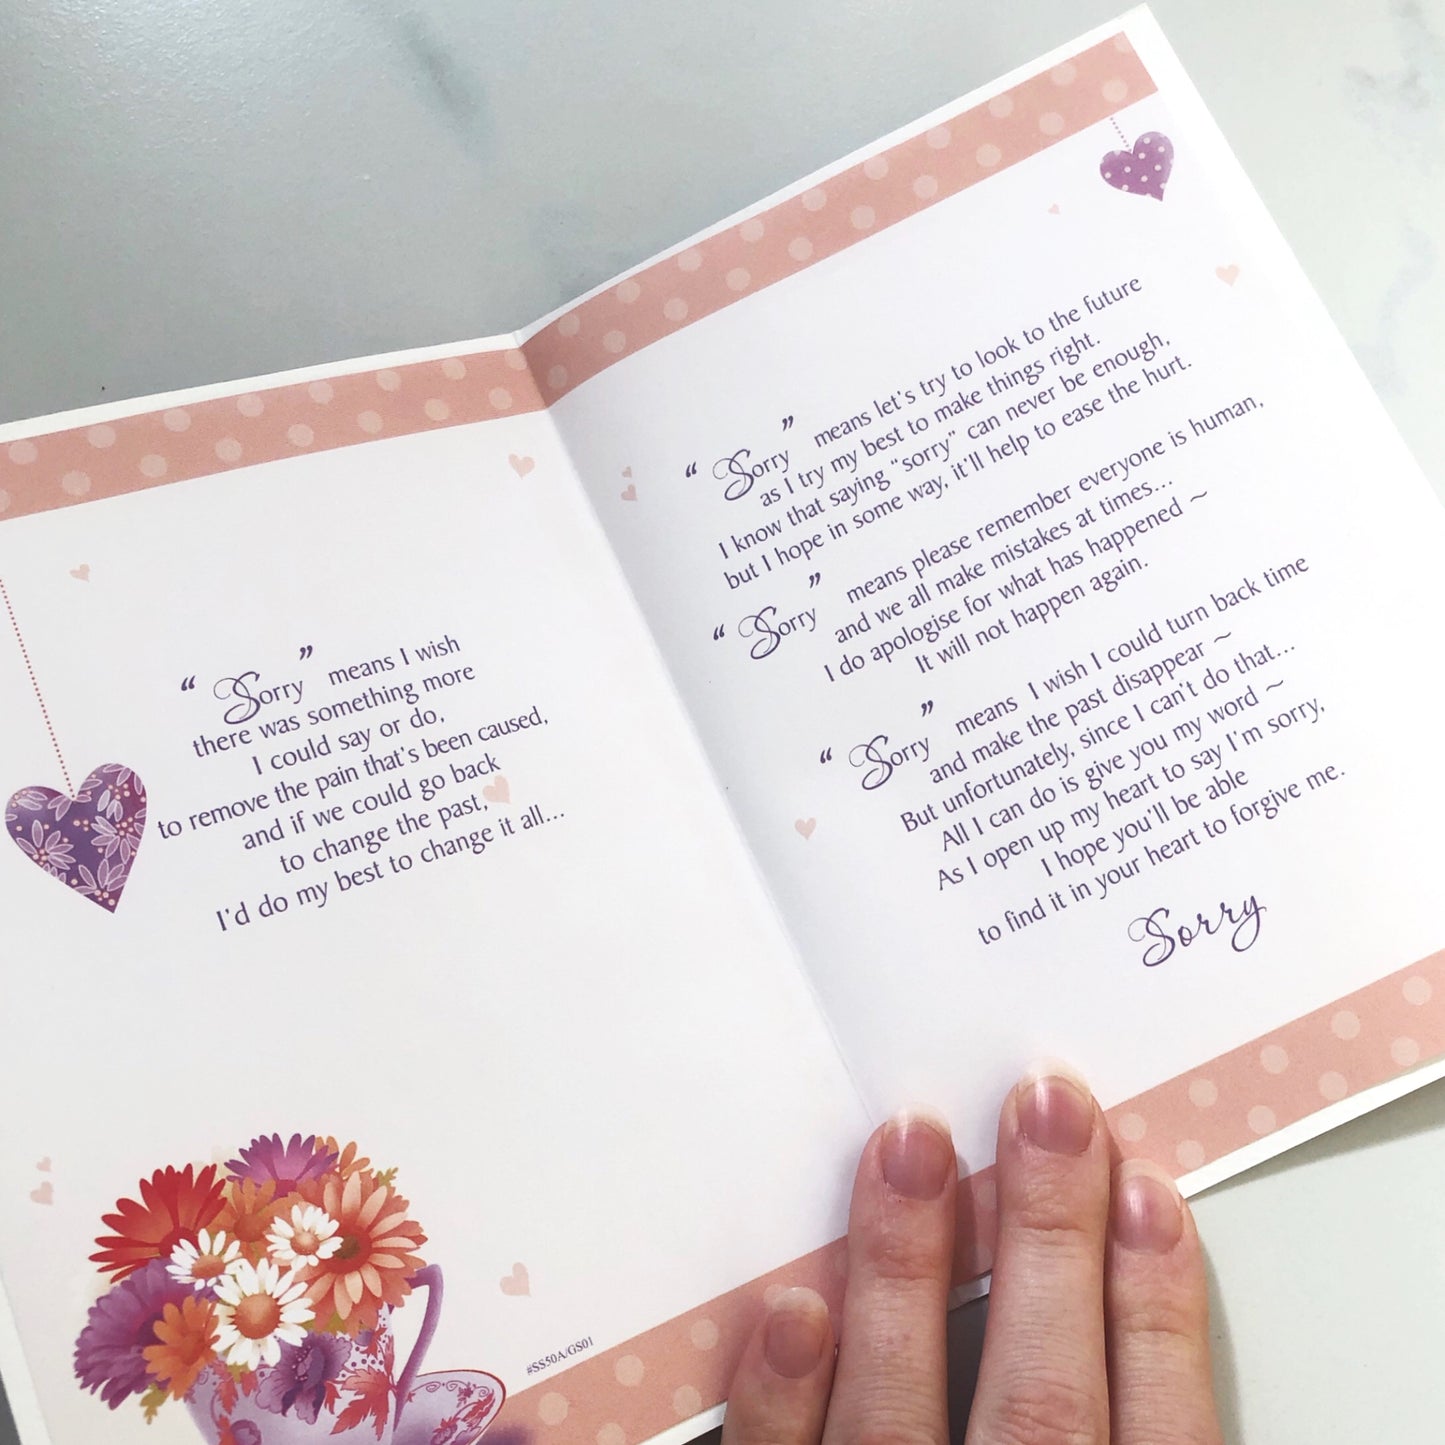 “Sorry” means I wish
there was something more
I could say or do,
to remove the pain that's been caused,
and if we could go back
to change the past,
I'd do my best to change it all...
#SS50A/GS01
“Sorry” means let's try to look to the future
as I try my best to make things right.
I know that saying “sorry” can never be enough,
but I hope in some way, it'll help to ease the hurt.
“Sorry” means please remember everyone is human,
and we all make mistakes at times...
I do apologise for what has happened ~
It will not happen again.
“Sorry” means I wish I could turn back time
and make the past disappear ~
But unfortunately, since I can't do that...
All I can do is give you my word ~
As I open up my heart to say I'm sorry,
I hope you'll be able
to find it in your heart to forgive me.
Sorry